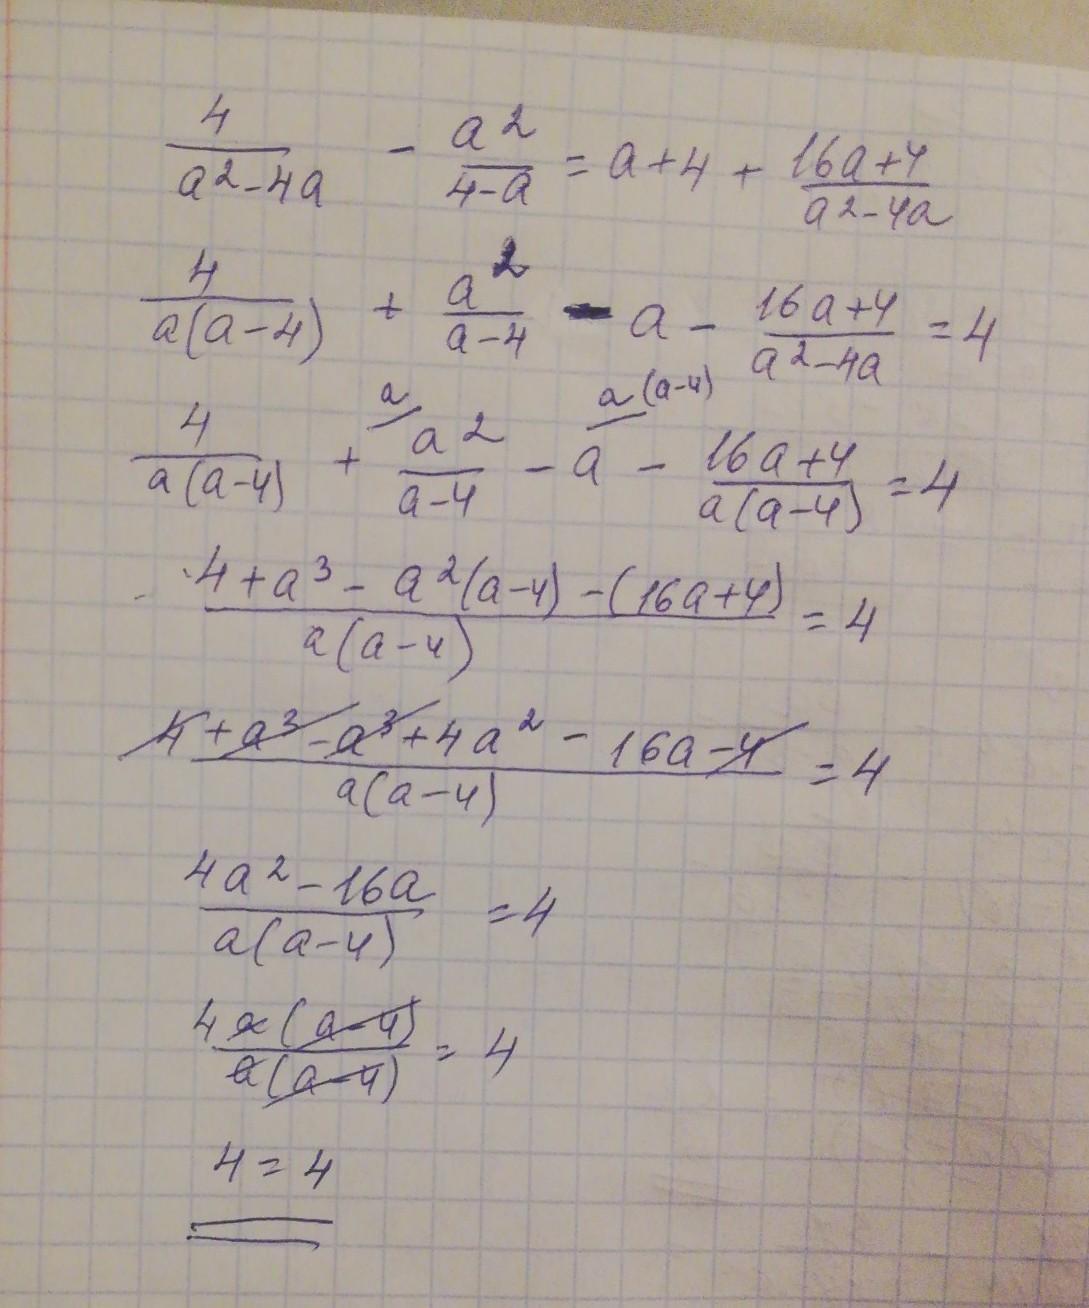 4/(a²-4a) - a²/(4-a) = a+4 + (16a+4)/(a²-4a)
4/(a(a-4)) + a²/(a-4) - a - (16a+4)/(a²-4a) = 4
a a(a-4)
4/(a(a-4)) + a²/(a-4) - a - (16a+4)/(a(a-4)) = 4
(4+a³-a²(a-4)-(16a+4))/(a(a-4)) = 4
(4+a³-a³+4a²-16a-4)/(a(a-4)) = 4
(4a²-16a)/(a(a-4)) = 4
4a(a-4)/(a(a-4)) = 4
4=4